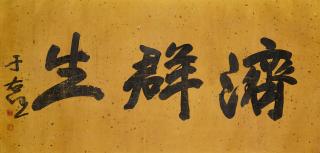 濟群生
于右任